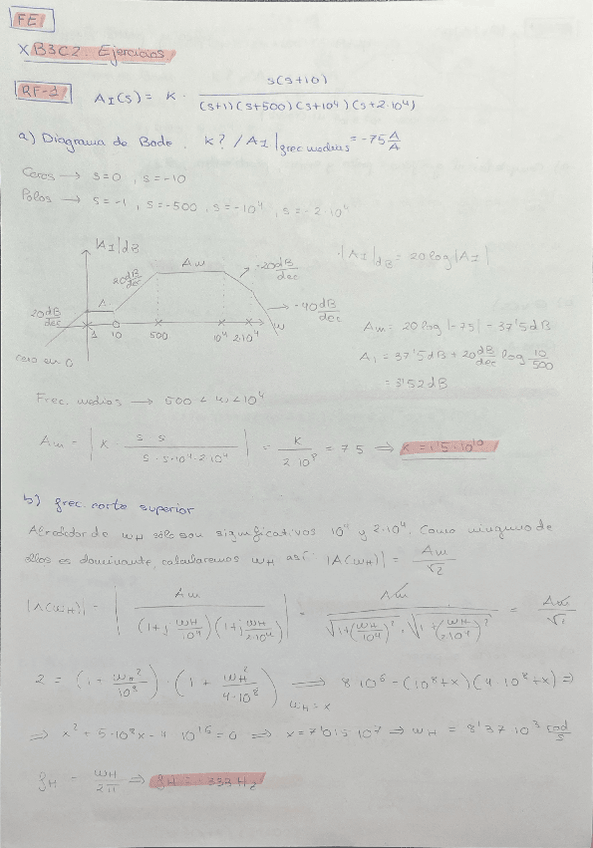 FE
X B3C2. Ejercicios
RF-1 A_I(s) = K · s(s+10) / (s+1)(s+500)(s+10⁴)(s+2·10⁴)
a) Diagrama de Bode. K? / A_I|frec medias = -75 A/A
Ceros → s=0, s=-10
Polos → s=-1, s=-500, s=-10⁴, s=-2·10⁴
|A_I|dB
·|A_I|dB = 20log|A_I|
20dB/dec
20dB/dec
Am
-20dB/dec
-40dB/dec
1 10 500 10⁴ 2·10⁴ w
cero en 0
Am = 20log|-75| = 37'5dB
A₁ = 37'5dB + 20 dB/dec log 10/500
= 3'52dB
Frec. medias → 500 < w < 10⁴
Am = | K · s·s / s·s·10⁴·2·10⁴ | = K / 2·10⁸ = 75 ⇒ K = 1'5·10¹⁰
b) frec. corte superior
Alrededor de wH sólo son significativos 10⁴ y 2·10⁴. Como ninguno de
ellos es dominante, calcularemos wH así: |A(wH)| = Am/√2
|A(wH)| = | Am / (1+j wH/10⁴)(1+j wH/2·10⁴) | = Am / √1+(wH/10⁴)² · √1+(wH/2·10⁴)² = Am/√2
2 = (1 + wH²/10⁸) · (1 + wH²/4·10⁸) ⇒ 8·10¹⁶ = (10⁸+x)(4·10⁸+x) ⇒
wH² = x
⇒ x² + 5·10⁸x - 4·10¹⁶ = 0 ⇒ x = 7'015·10⁷ ⇒ wH = 8'37·10³ rad/s
fH = wH/2π ⇒ fH =